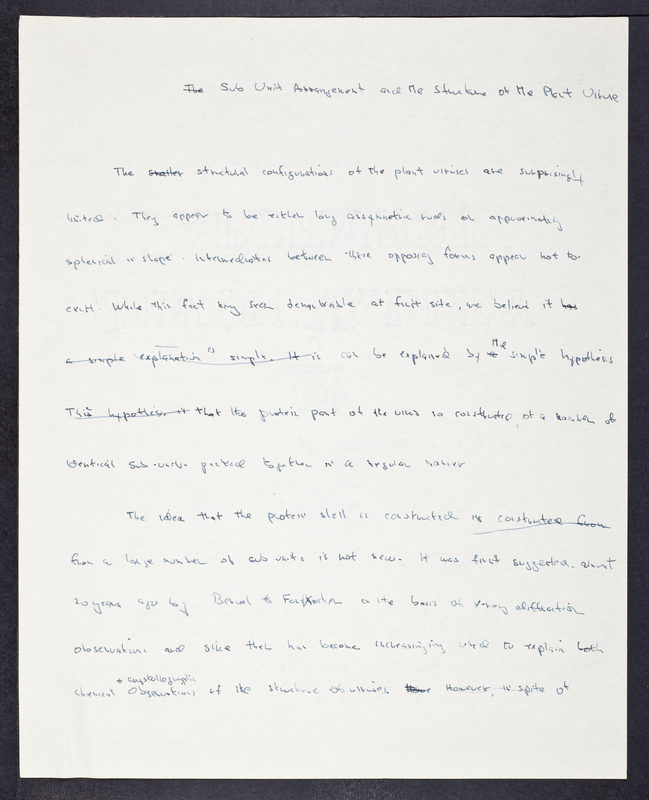 The Sub Unit Arrangement and the Structure of the Plant Viruse
The smaller structural configurations of the plant viruses are surprisingly
limited. They appear to be either long assymmetric rods or approximately
spherical in shape. Intermediates between these opposing forms appear not to
exist. While this fact may seem remarkable at first site, we believe it has
a simple explanation is simple. It is can be explained by the simple hypothesis
This hypothesis is that the protein part of the virus is constructed of a number of
identical sub-units packed together in a regular manner
The idea that the protein shell is constructed is constructed from
from a large number of sub units is not new. It was first suggested almost
20 years ago by Bernal & Fankuchen on the basis of x-ray diffraction
observations and since then has become increasingly used to explain both
chemical & crystallographic observations of the structure of viruses However, in spite of